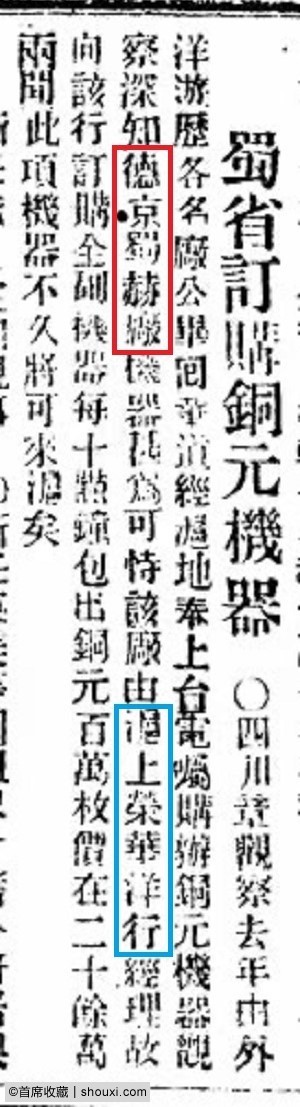 蜀省訂購銅元機器 〇四川章觀察去年由外
洋游歷各名廠公畢回華道經滬地奉上台電囑購辦銅元機器觀
察深知德京蜀赫廠機器甚爲可恃該廠由滬上榮華洋行經理故
向該行訂購全副機器每十點鐘包出銅元百萬枚價在二十餘萬
兩聞此項機器不久將可來滬矣
©首席收藏 | shouxi.com